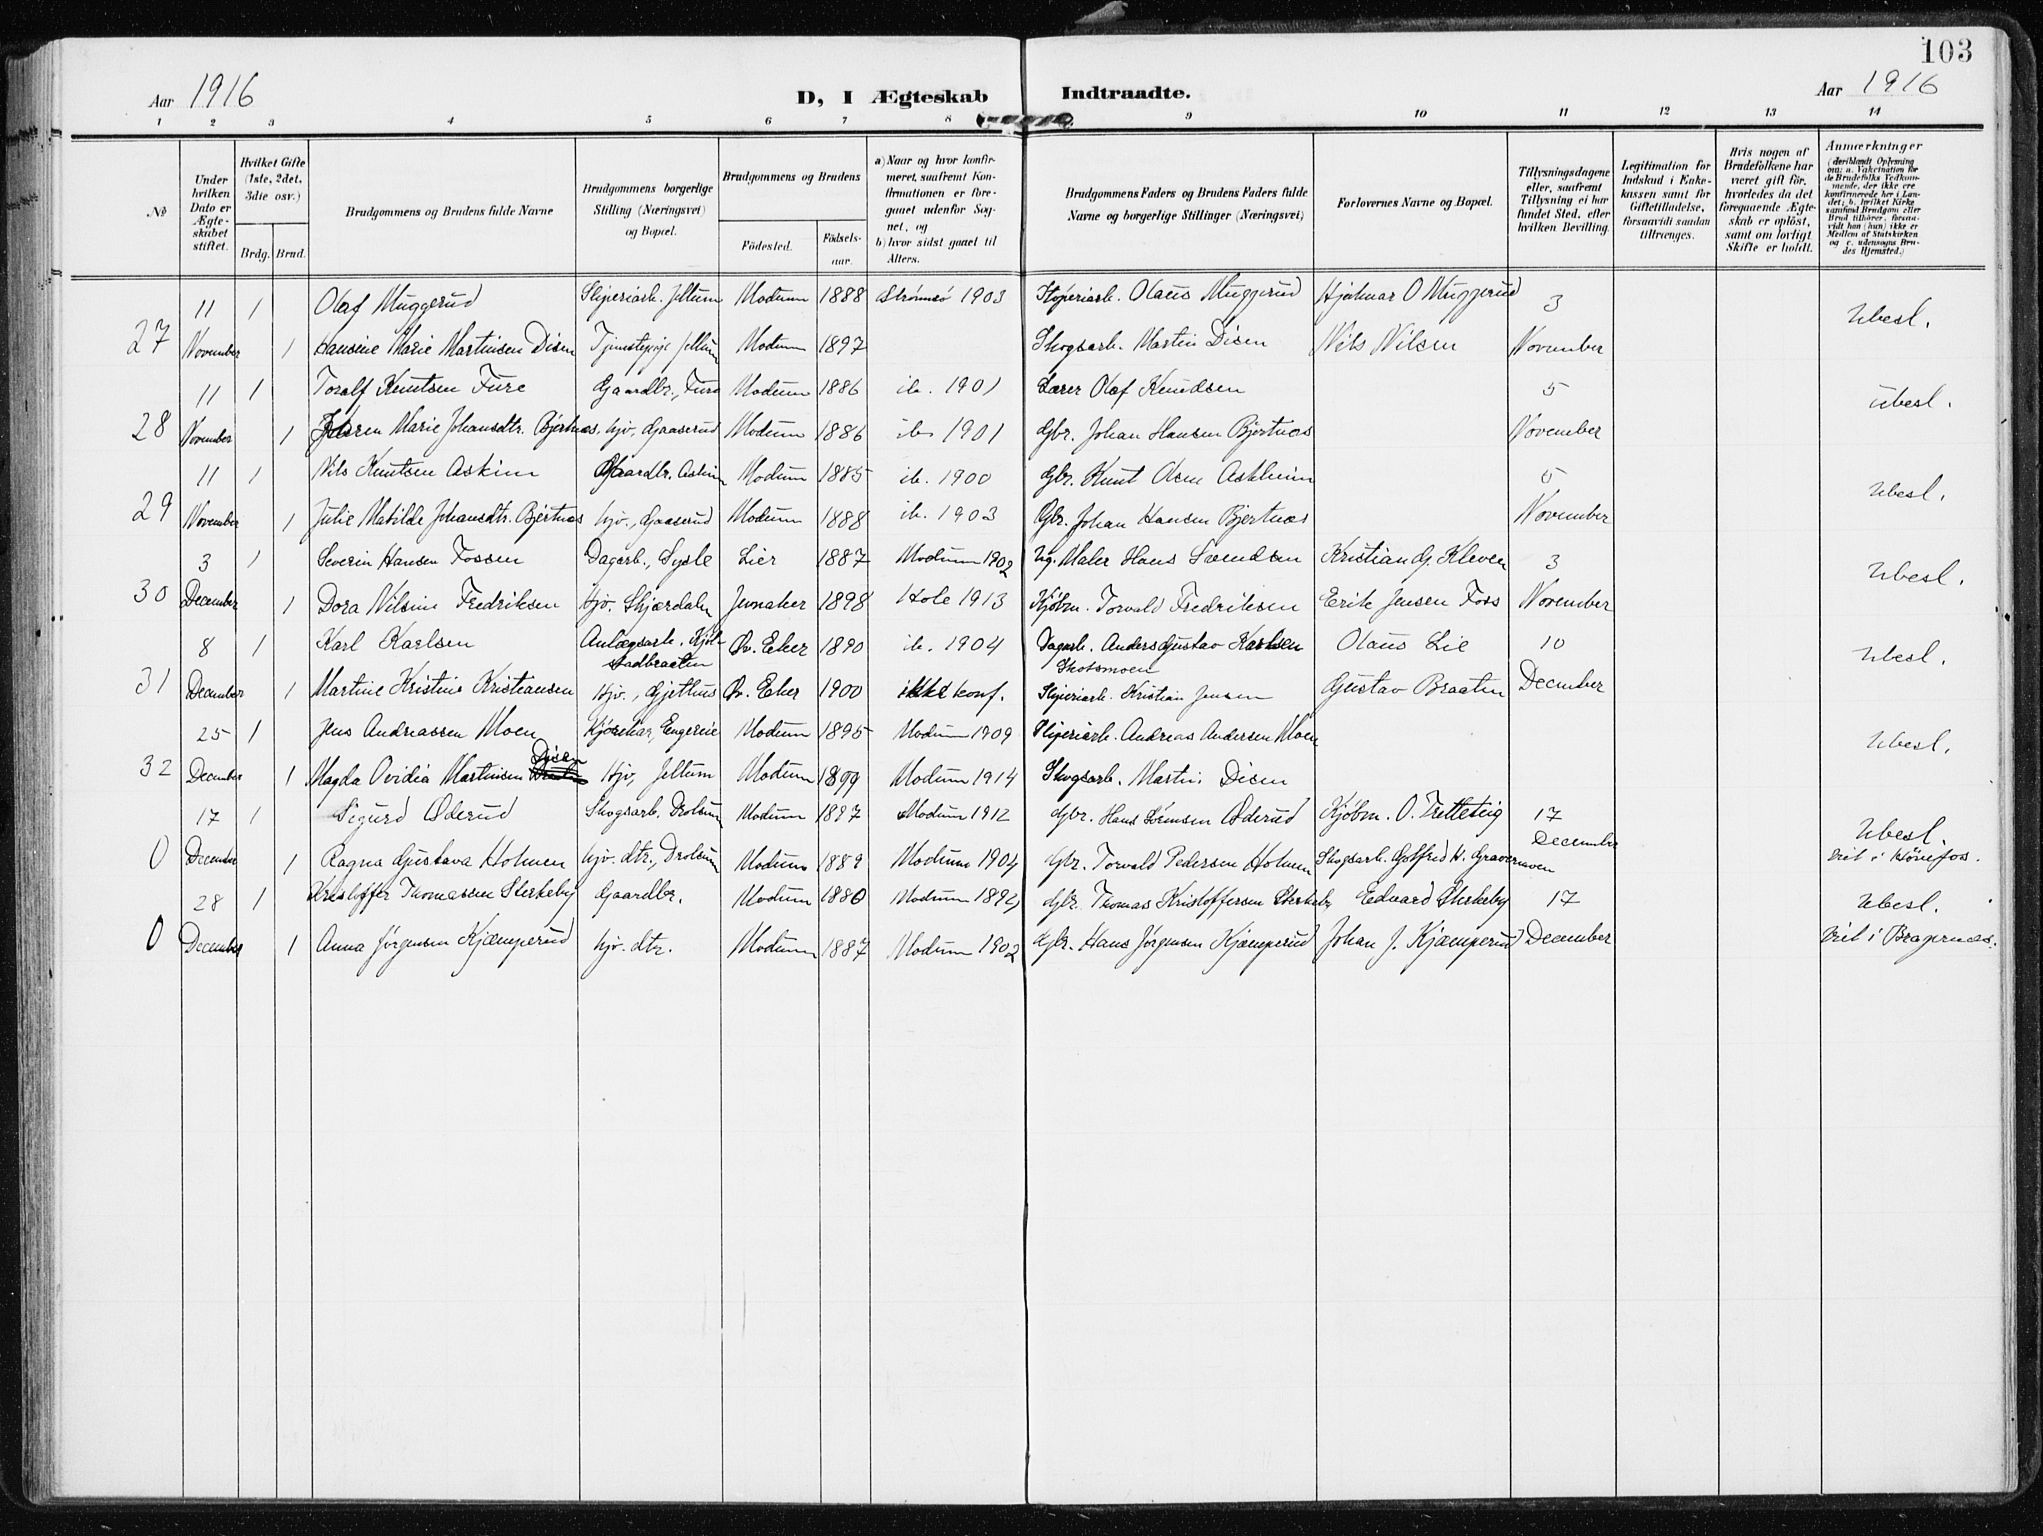 103
Aar 1916 D, I Ægteskab Indtraadte. Aar 1916
1 2 3 4 5 6 7 8 9 10 11 12 13 14
№
Under hvilken Dato er Ægteskabet stiftet.
Hvilket Gifte (1ste, 2det, 3die osv.)
Brdg. Brud.
Brudgommens og Brudens fulde Navne
Brudgommens borgerlige Stilling (Næringsvei) og Bopæl.
Brudgommens og Brudens
Fødested. Fødselsaar.
a) Naar og hvor konfirmeret, saafremt Konfirmationen er foregaaet udenfor Sognet, og
b) hvor sidst gaaet til Alters.
Brudgommens Faders og Brudens Faders fulde Navne og borgerlige Stillinger (Næringsvei)
Forlovernes Navne og Bopæl.
Tillysningsdagene eller, saafremt Tillysning ei har fundet Sted, efter hvilken Bevilling.
Legitimation for Indskud i Enkekassen samt for Giftetilladelse, forsaavidt saadan tiltrænges.
Hvis nogen af Brudefolkene har været gift før, hvorledes da det foregaaende Ægteskab er opløst, samt om lovligt Skifte er holdt.
Anmærkninger (deriblandt Oplysning om: a. Vakcination for de Brudefolks Vedkommende, der ikke ere konfirmerede her i Landet; b. hvilket Kirkesamfund Brudgom eller Brud tilhører, forsaavidt han (hun) ikke er Medlem af Statskirken og c. udensogns Brudes Hjemsted.)
11 1 Olaf Muggerud Sliperiarb. Jellum Modum 1888 Strømsø 1903 Sliperiarb. Olaus Muggerud Hjalmar O Muggerud 3 Ubesl.
27 November 1 Hansine Marie Martinsen Disen Tjenestepige Jellum Modum 1897 Skogsarb. Martin Disen Nils Nilsen November
11 1 Toralf Knutsen Fure Gaardbr., Fure Modum 1886 ib. 1901 Lærer Olaf Knudsen 5 Ubesl.
28 November 1 Marie Johansdtr. Bjertnæs hjv., Gaaserud Modum 1886 ib 1901 Gbr. Johan Hansen Bjertnæs November
11 1 Nils Knutsen Askim Gaardbr. Askim Modum 1885 ib. 1900 Gbr. Knut Olsen Askheim 5 Ubesl.
29 November 1 Julie Matilde Johansdtr. Bjertnæs hjv., Gaaserud Modum 1888 ib. 1903 Gbr. Johan Hansen Bjertnæs November
3 1 Severin Hansen Fossen Dagarb., Sysle Lier 1887 Modum 1902 Maler Hans Svendsen Kristian G. Kleven 3 Ubesl.
30 December 1 Dora Nilsine Fredriksen hjv. Skjærdalen Jevnaker 1898 Hole 1913 Kjøbm. Torvald Fredriksen Erik Jensen Foss November
8 1 Karl Karlsen Anlægsarb. Kjølstadbraaten Øv. Eker 1890 ib. 1904 Dagarb. Anders Gustav Karlsen Skotsmoen Olaus Lie 10 Ubesl.
31 December 1 Martine Kristine Kristiansen hjv., Gjethus Øv. Eker 1900 ikke konf. Sliperiarb. Kristian Jensen Gustav Braaten December
25 1 Jens Andreassen Moen Kjørekar, Engerne Modum 1895 Modum 1909 Sliperiarb. Andreas Andersen Moen Ubesl.
32 December 1 Magda Ovidia Martinsen Disen hjv, Jellum Modum 1899 Modum 1914 Skogsarb. Martin Disen
17 1 Sigurd Øderud Skogsarb, Drolsum Modum 1897 Modum 1912 Gbr. Hans Sørensen Øderud Kjøbm. O. Tretteteig 17 Ubesl.
0 December 1 Ragna Gustava Holmen hjv. dtr., Drolsum Modum 1889 Modum 1904 Gbr. Torvald Pedersen Holmen Skogsarb. Gotfred H. Gravermoen December Viet i Hønefos.
28 1 Kristoffer Thomassen Sterkeby Gaardbr. Modum 1880 Modum 1894 Gbr. Thomas Kristoffersen Sterkeby Edvard Sterkeby 17 Ubesl.
0 December 1 Anna Jørgensen Kjæmperud hjv. dtr. Modum 1887 Modum 1902 Gbr. Hans Jørgensen Kjæmperud Johan J. Kjæmperud December Viet i Bragernæs.